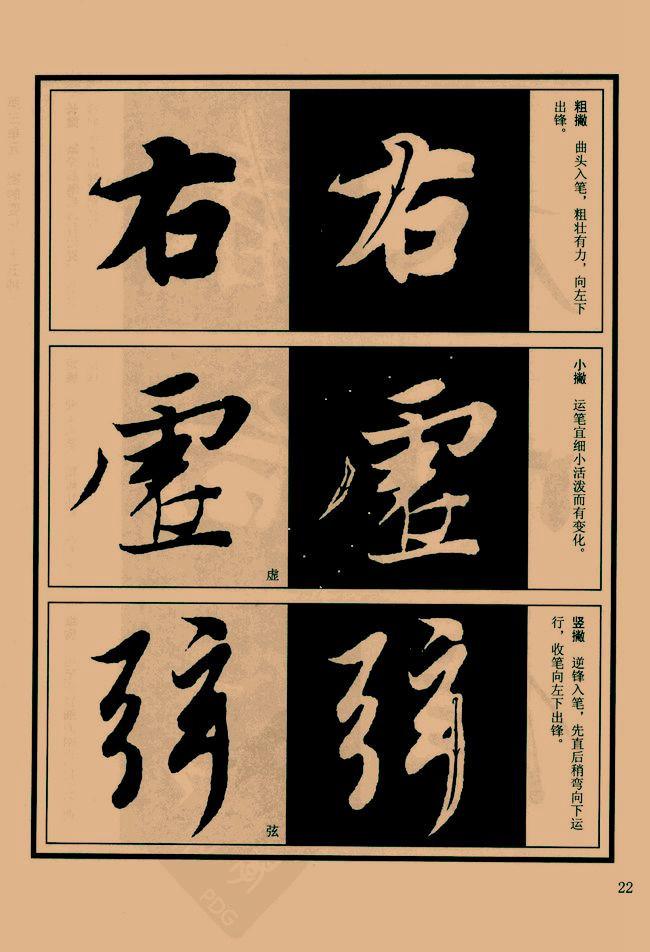 粗撇　曲头入笔，粗壮有力，向左下
出锋。
右
右
小撇　运笔宜细小活泼而有变化。
虚
虚
虚
竖撇　逆锋入笔，先直后稍弯向下运
行，收笔向左下出锋。
弦
弦
弦
22
PDG